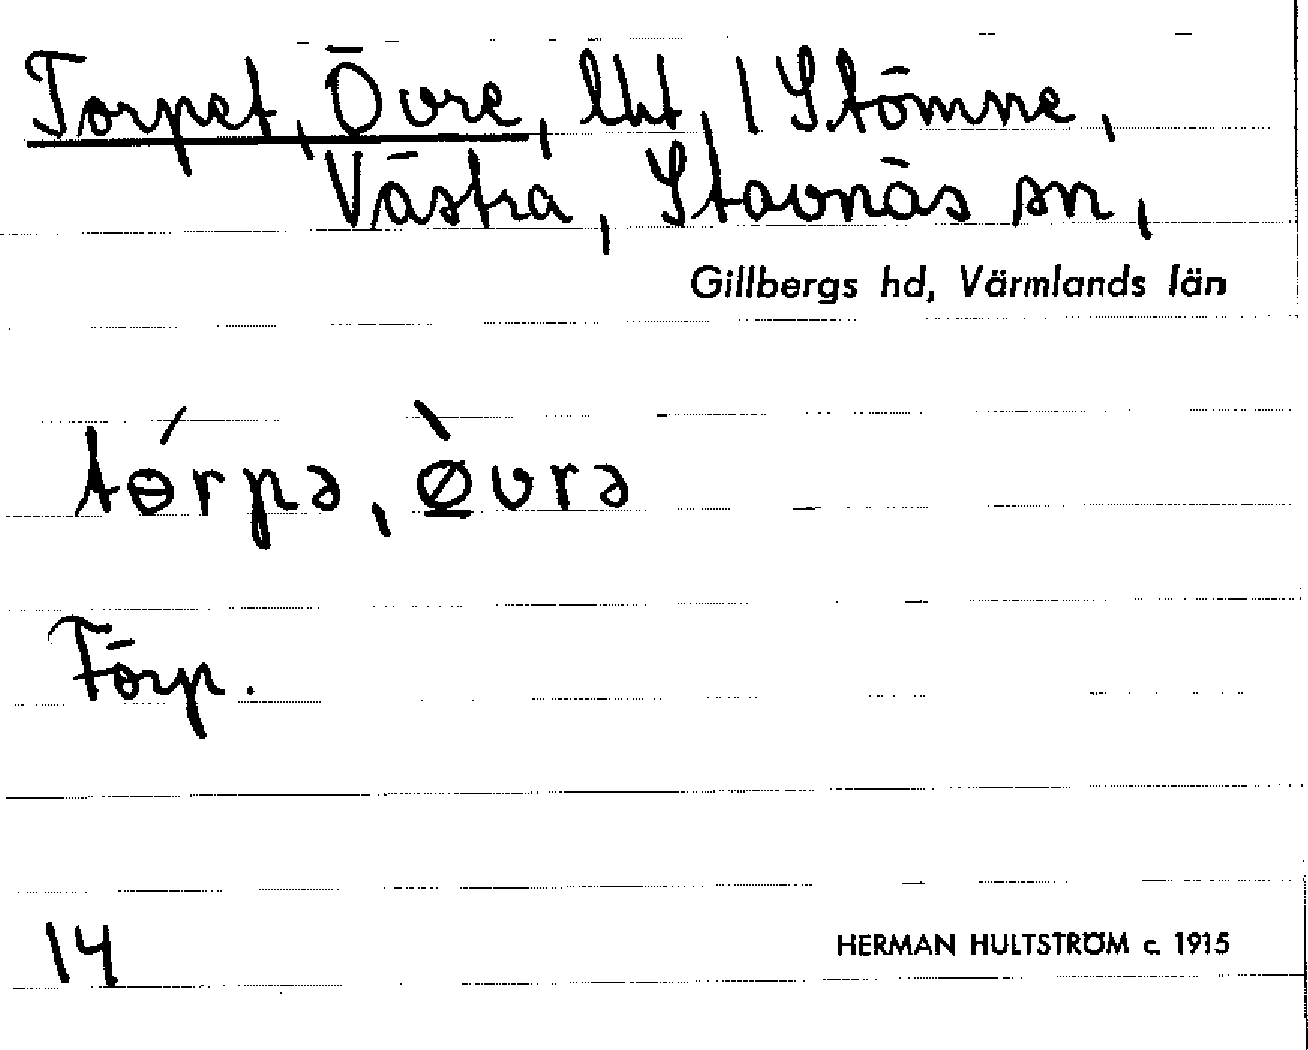 Torpet, Övre, lht, 1 Stömne,
Västra, Stavnäs sn,
Gillbergs hd, Värmlands län
tɵ́rpə, ø̱̀vrə
Förp.
14
HERMAN HULTSTRÖM c. 1915